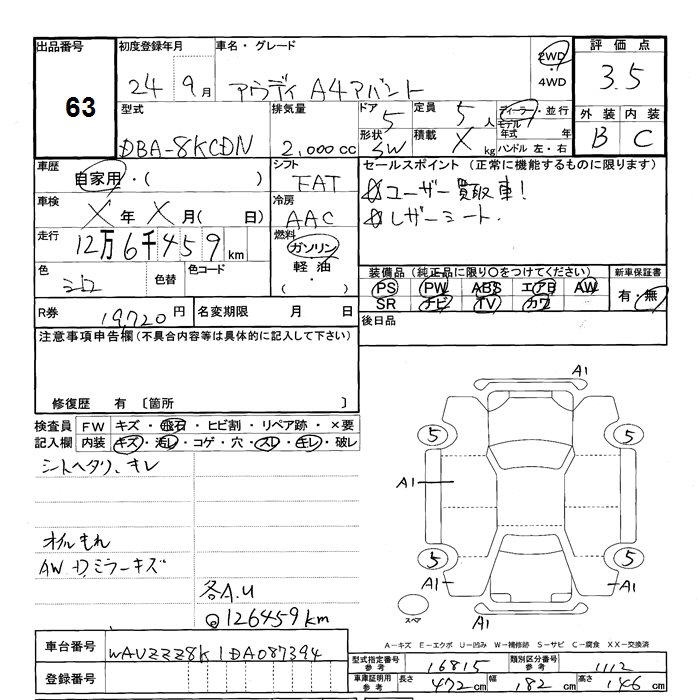 出品番号
63
初度登録年月 車名・グレード
24 9月 アウディ A4アバント
2WD
・
4WD
評価点
3.5
外装 内装
B C
型式 排気量
DBA-8KCDN 2,000cc
ドア 5 定員 5人
形状 SW 積載 X kg
ディーラー・並行
モデル
年式 年
ハンドル 左・右
車歴 自家用・( )
シフト
FAT
車検 X年X月( 日)
冷房
AAC
走行 12万6千459km
燃料
ガソリン
軽油
・( )
色 シロ 色替 色コード
R券 19,720円 名変期限 月 日
セールスポイント(正常に機能するものに限ります)
ユーザー買取車!
レザーシート.
装備品(純正品に限り〇をつけてください) 新車保証書
PS PW ABS エアB AW
SR ナビ TV カワ
有・無
後日品
注意事項申告欄(不具合内容等は具体的に記入して下さい)
修復歴 有 〔箇所 〕
検査員 FW キズ・飛石・ヒビ割・リペア跡・×要
記入欄 内装 キズ・汚レ・コゲ・穴・スレ・キレ・破レ
シートヘタリ、キレ
オイルもれ
AW・D.ミラーキズ
各A.U
@126459km
A1
5 5
A1
5 5
A1 A1
スペア
A1
A-キズ E-エクボ U-凹み W-補修跡 S-サビ C-腐食 XX-交換済
車台番号 WAUZZZ8K1DA087394
登録番号
型式指定番号 参考 16815 類別区分番号 参考 1112
車庫証明用 参考 長さ 472cm 幅 182cm 高さ 146cm